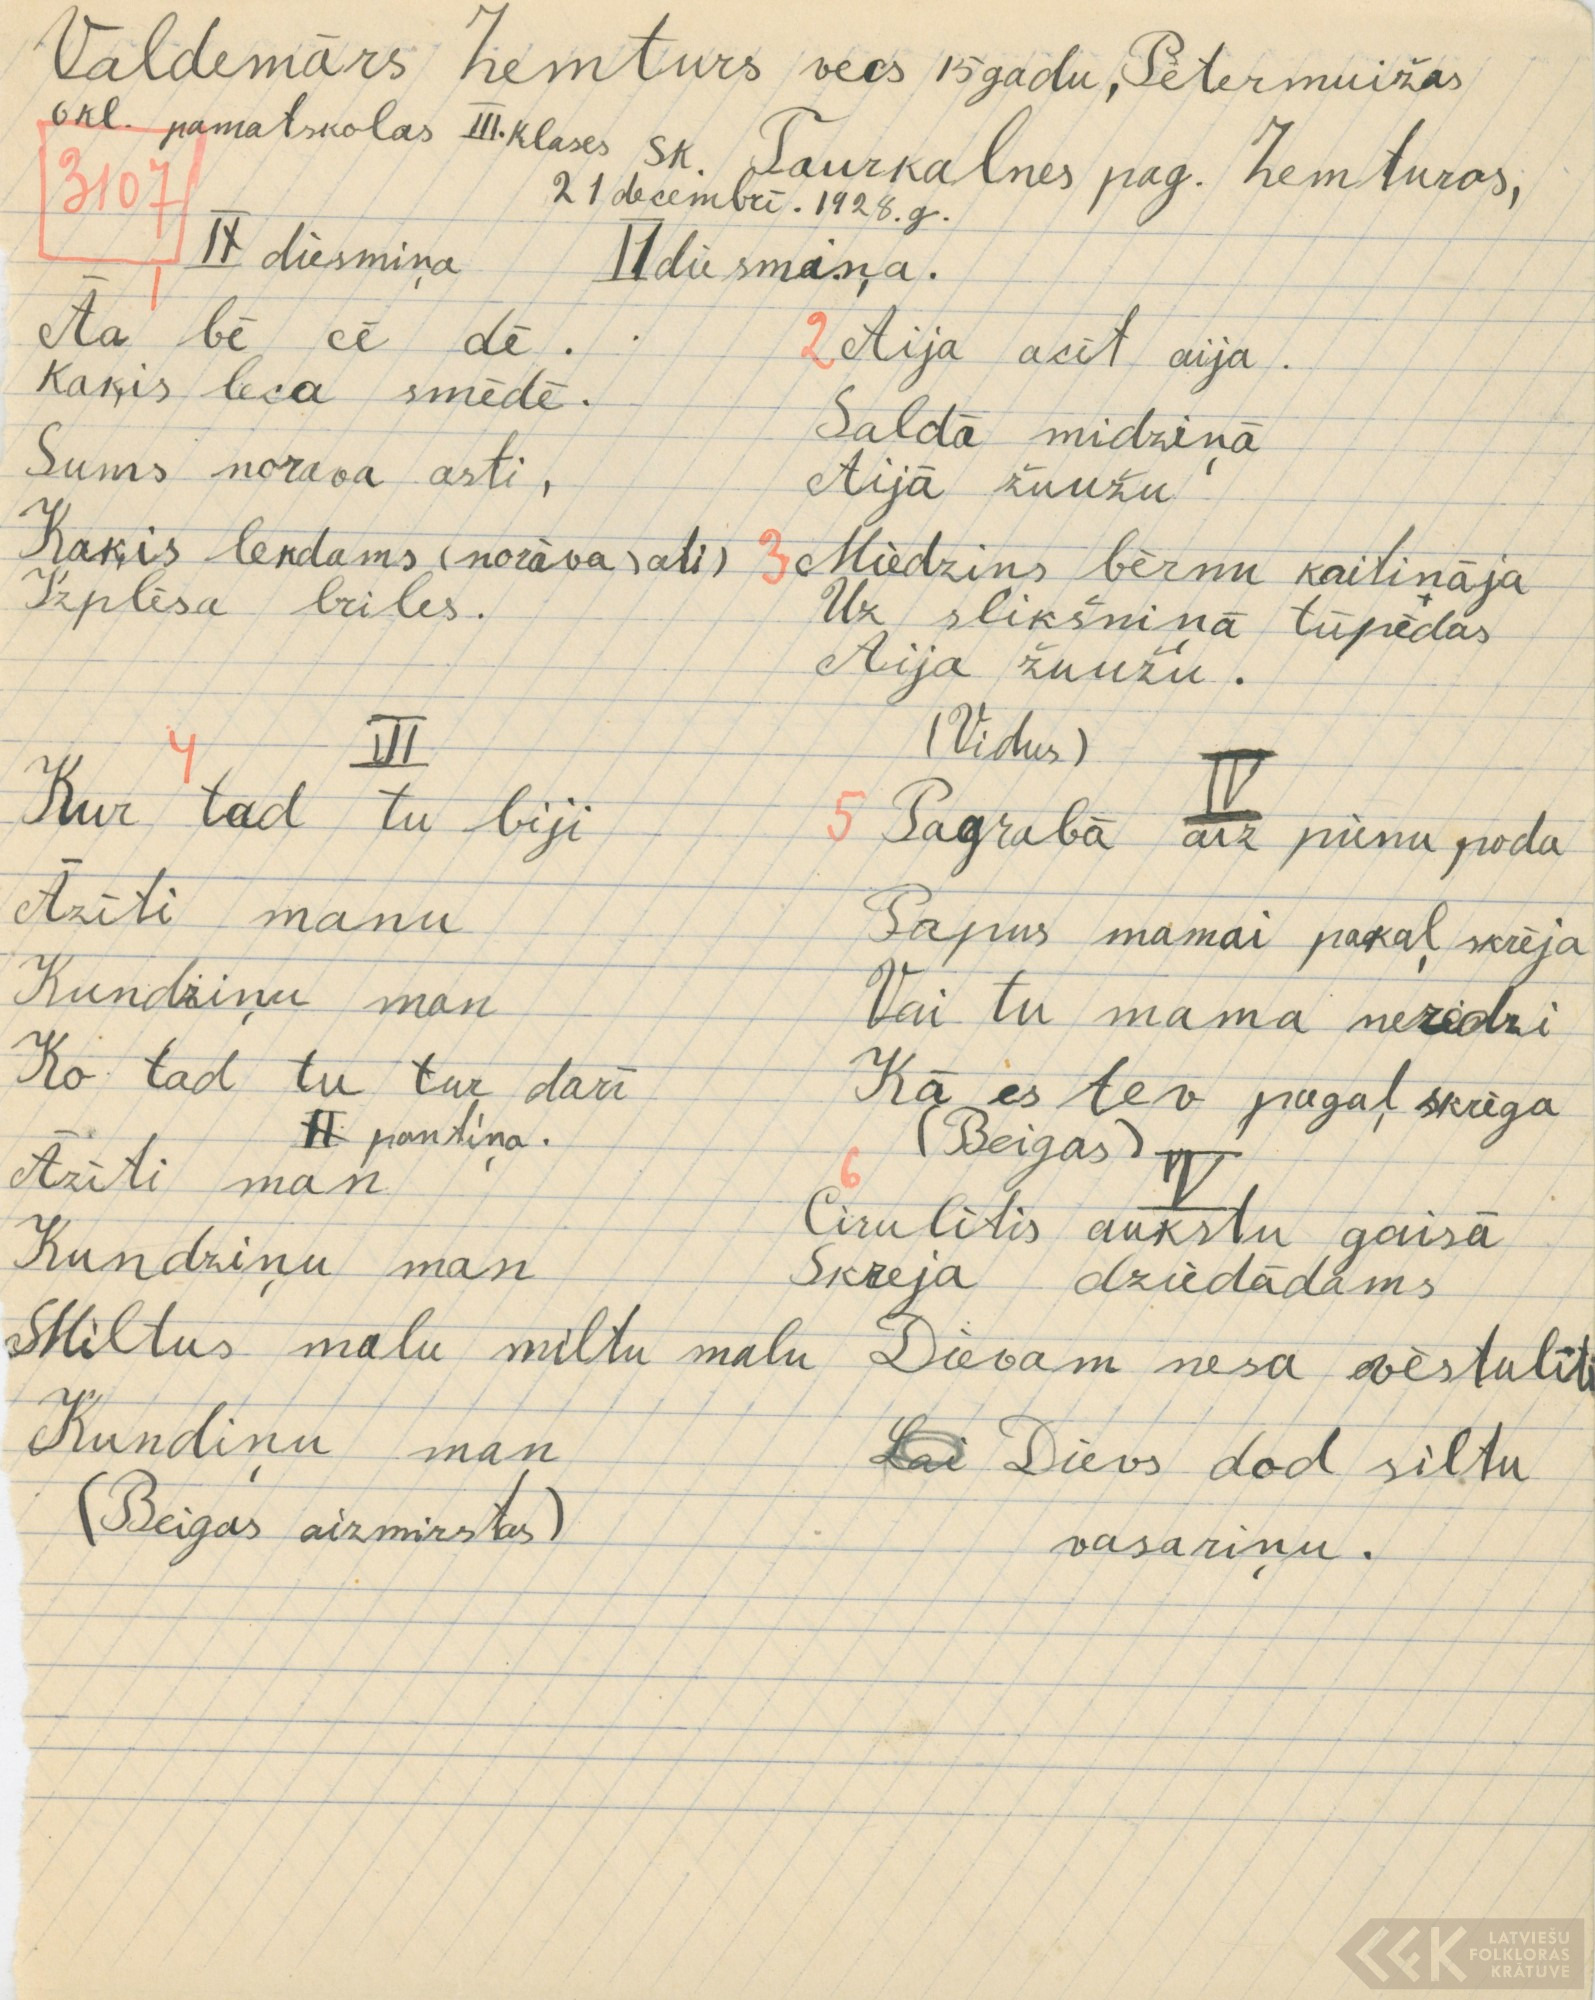 Valdemārs Zemturs vecs 15 gadu, Pētermuižas
6 kl. pamatskolas III. klases sk. Taurkalnes pag. Zemturos,
21 decembrī. 1928. g.
3107
dìesmiņa
1
Āa bē cē dē.
Kaķis leca smēdē.
Sums norava asti,
Kaķis lekdams (norāva) ati)
Izplēsa briles.
II dìesmiņa.
2 Aija acīt aija.
Saldā midziņā
Aijā žuužu
3 Mìedzins bērnu kaitiņāja
Uz slikšniņā tūpēdas
Aija žuužu.
(Vidus)
4 III
Kur tad tu biji
Āzīti manu
Kundziņu man
Ko tad tu tur darī
II pantiņa.
Āzīti man
Kundziņu man
Miltus malu miltu malu
Kundiņu man
(Beigas aizmirstas)
IV
5 Pagrabā aiz pìenu poda
Papus mamai pakaļ skrēja
Vai tu mama neredzi
Kā es tev pagaļ skrēga
(Beigas)
6 IV
Cīrulītis aukstu gaisā
Skreja dzìedādams
Dìevam nesa vēstulīti
Lai Dìevs dod siltu
vasariņu.
LATVIEŠU
FOLKLORAS
KRĀTUVE